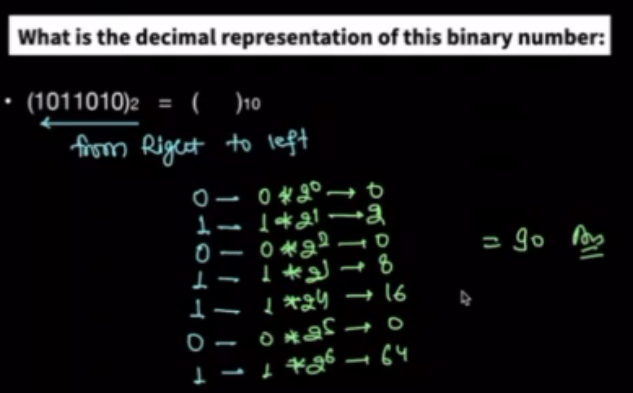 What is the decimal representation of this binary number:
• (1011010)2 = ( )10
from Right to left
0 — 0 * 2⁰ → 0
1 — 1 * 2¹ → 2
0 — 0 * 2² → 0
1 — 1 * 2³ → 8
1 — 1 * 2⁴ → 16
0 — 0 * 2⁵ → 0
1 — 1 * 2⁶ → 64
= 90 Ans